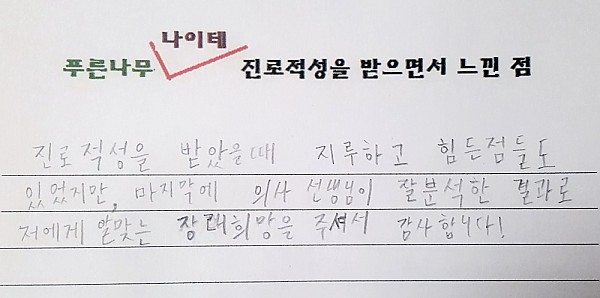 나이테
푸른나무 진로적성을 받으면서 느낀 점
진로적성을 받았을때 지루하고 힘든점들도
있었지만, 마지막에 의사 선생님이 잘분석한 결과로
저에게 알맞는 장래희망을 주셔서 감사합니다!